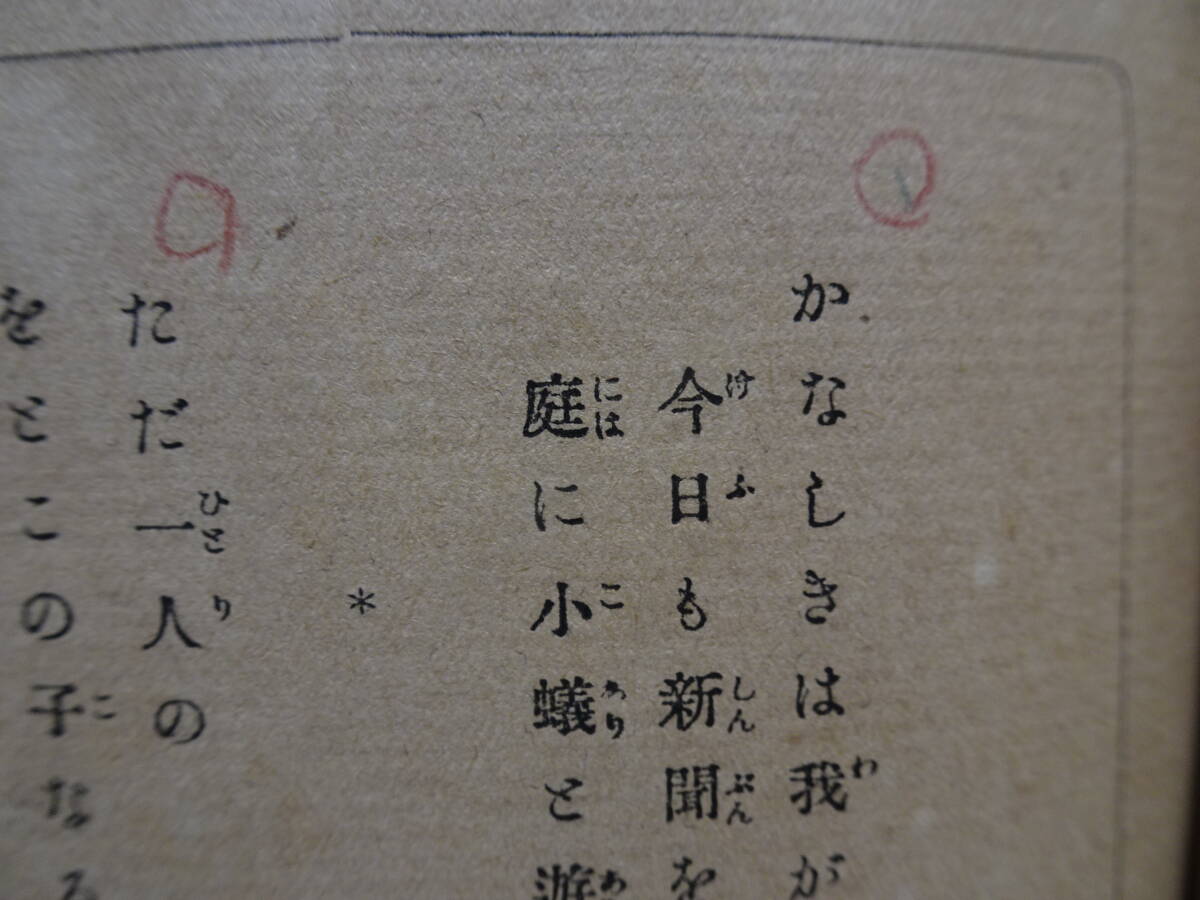 かなしきは我が
今日も新聞を
庭に小蟻と遊
*
ただ一人の
をとこの子なる